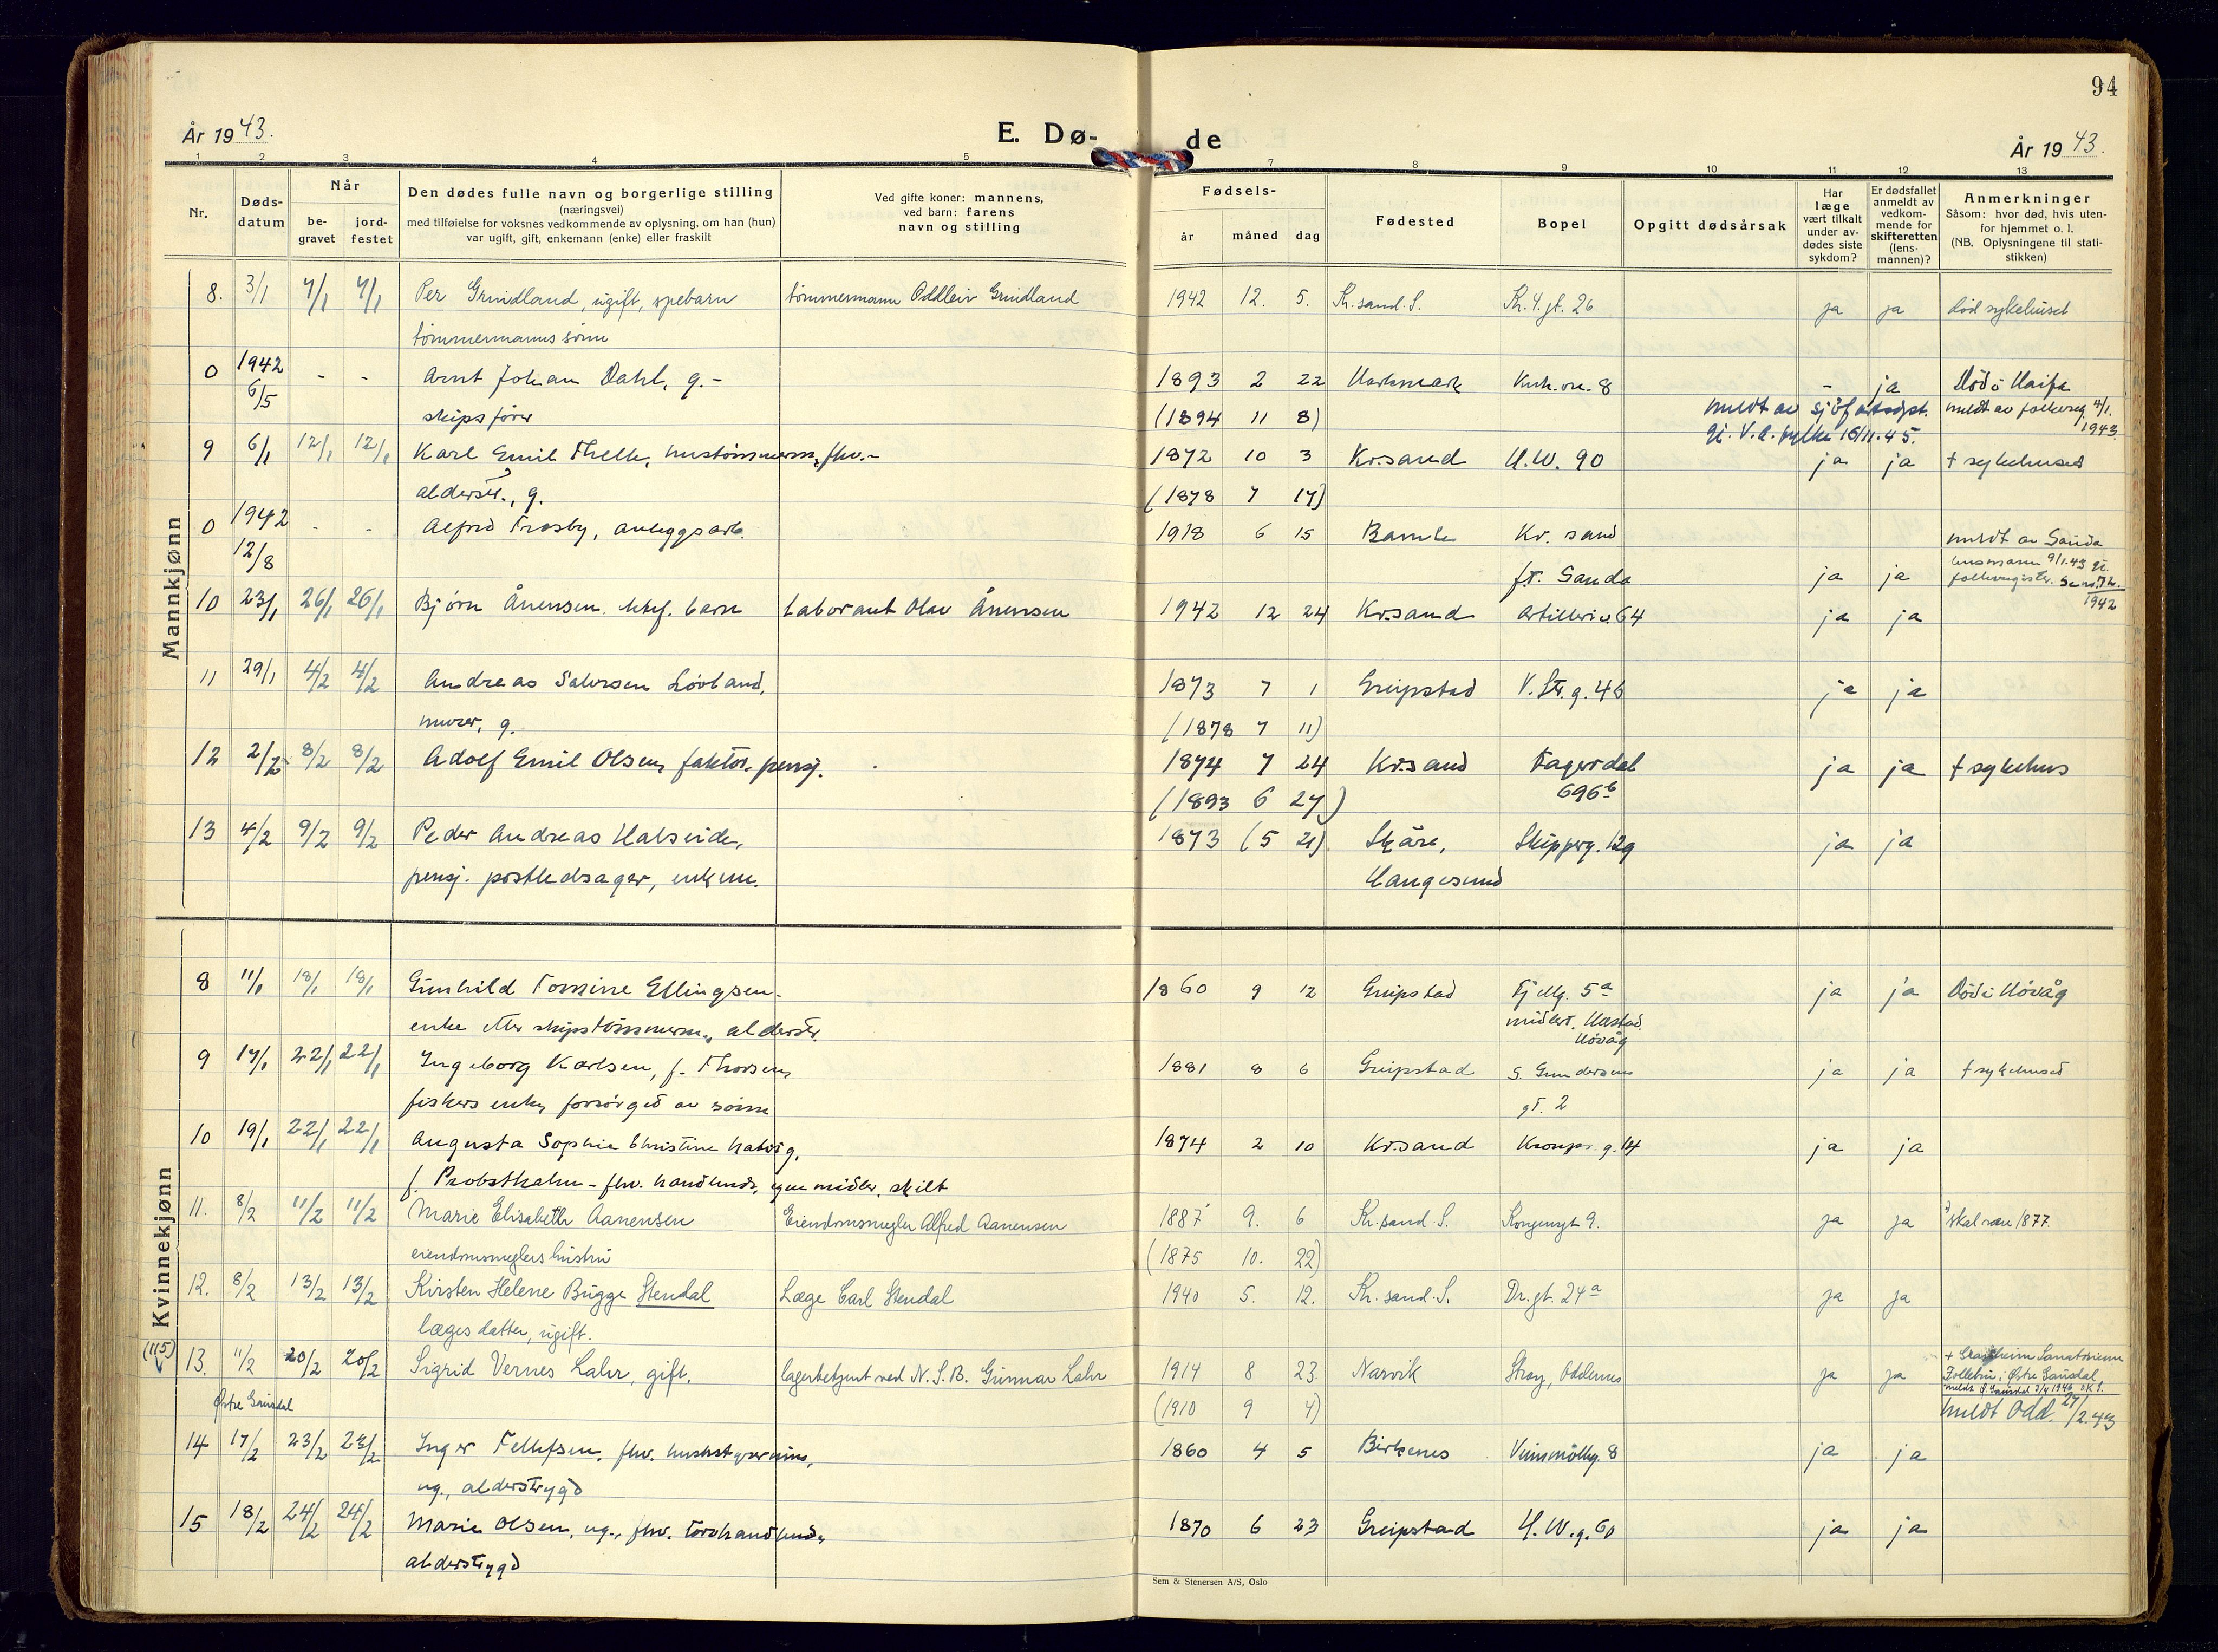 94
År 1943. E. Dø- de År 1943.
1 2 3 4 5 7 8 9 10 11 12 13
Nr.
Døds-
datum
Når
be-
gravet
jord-
festet
Den dødes fulle navn og borgerlige stilling
(næringsvei)
med tilføielse for voksnes vedkommende av oplysning, om han (hun)
var ugift, gift, enkemann (enke) eller fraskilt
Ved gifte koner: mannens,
ved barn: farens
navn og stilling
Fødsels-
år måned dag
Fødested
Bopel
Opgitt dødsårsak
Har
læge
vært tilkalt
under av-
dødes siste
sykdom?
Er dødsfallet
anmeldt av
vedkom-
mende for
skifteretten
(lens-
mannen)?
Anmerkninger
Såsom: hvor død, hvis uten-
for hjemmet o. l.
(NB. Oplysningene til stati-
stikken)
Mannkjønn
8. 3/1 7/1 7/1 Per Grindland, ugift, spebarn tømmermann Oddleiv Grindland 1942 12. 5. Kr.sand.S. Kr. 4. gt. 26 ja ja død sykehuset
tømmermanns sønn
0 1942 - - Arnt Johan Dahl, g.- 1893 2 22 Harkmark 8 - ja Død i Haifa
6/5 skipsfører (1894 11 8) meldt av sjøfartsdpt. meldt av folkereg. 4/1.
V.A. fylke 16/11.45. 1943.
9 6/1 12/1 12/1 Karl Emil Thelle, hustømmerm., fhv.- 1872 10 3 Kr.sand H.W. 90 ja ja † sykehuset
alderstr., g. (1878 7 17)
0 1942 - - Alfred Frosby, anleggsarb. 1918 6 15 Bamle Kr. sand meldt av Sauda
12/8 f.t. Sauda ja ja lensmann 9/1.43
1942
10 23/1 26/1 26/1 Bjørn Ånensen. barn Laborant Olav Ånensen 1942 12 24 Kr.sand Artilleriv. 64 ja ja
11 29/1 4/2 4/2 Andreas Salvesen Løvland, 1873 7 1 Greipstad V. Str. g. 46 ja ja
murer, g. (1878 7 11)
12 2/2 8/2 8/2 Adolf Emil Olsen, faktor, pensj. 1874 7 24 Kr.sand Fagerdal ja ja † sykehus
(1893 6 27) 696b
13 4/2 9/2 9/2 Peder Andreas Halseide, 1873 (5 21) Skåre, Skipperg. 129 ja ja
pensj. postledsager, enkem. Haugesund
Kvinnekjønn
8 11/1 18/1 18/1 Gunhild Tomine Ellingsen. 1860 9 12 Greipstad Fjellg. 5a ja ja Død i Høvåg
enke etter skipstømmerm., alderstr. midlert. Høvåg
9 17/1 22/1 22/1 Ingeborg Karlsen, f. Thorsen, 1881 8 6 Greipstad G. Gundersens ja ja † sykehuset
fiskers enke, forsørget av sønn gt. 2
10 19/1 22/1 22/1 Augusta Sophie Christine Natvig, 1874 2 10 Kr.sand Kronpr. g. 14 ja ja
f. Probsthahn - fhv. handlende, egne midler, skilt
11. 8/2 11/2 11/2 Marie Elisabeth Aanensen Eiendomsmegler Alfred Aanensen 1887 9. 6 Kr.sand.S. Kongensgt 9. ja ja skal være 1877.
eiendomsmeglers hustru (1875 10. 22)
12. 8/2 13/2 13/2 Kirsten Helene Bugge Stendal Læge Carl Stendal 1940 5. 12. Kr.sand.S. Dr.gt. 24a ja ja
læges datter, ugift.
(115) 13. 11/2 20/2 20/2 Sigrid Vernes Lahr, gift. lagerbetjent ved N.S.B. Gunnar Lahr 1914 8 23. Narvik Stray, Oddernes ja ja + Sanatorium
Østre Gausdal (1910 9 4) Follebu i Østre Gausdal
meldt Odd. 27/2.43
14 17/2 23/2 23/2 Inger Tellefsen, fhv. husbestyrerinne, 1860 4 5 Birkenes Vinmøllg. 8 ja ja
ug., alderstrygd
15 18/2 24/2 24/2 Marie Olsen, ug., fhv. torvhandlende, 1870 6 23 Greipstad H.W.g. 60 ja ja
alderstrygd
Sem & Stenersen A/S, Oslo